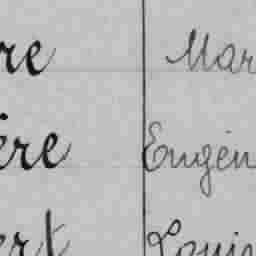 re Mar
ère Eugén
ert Louis